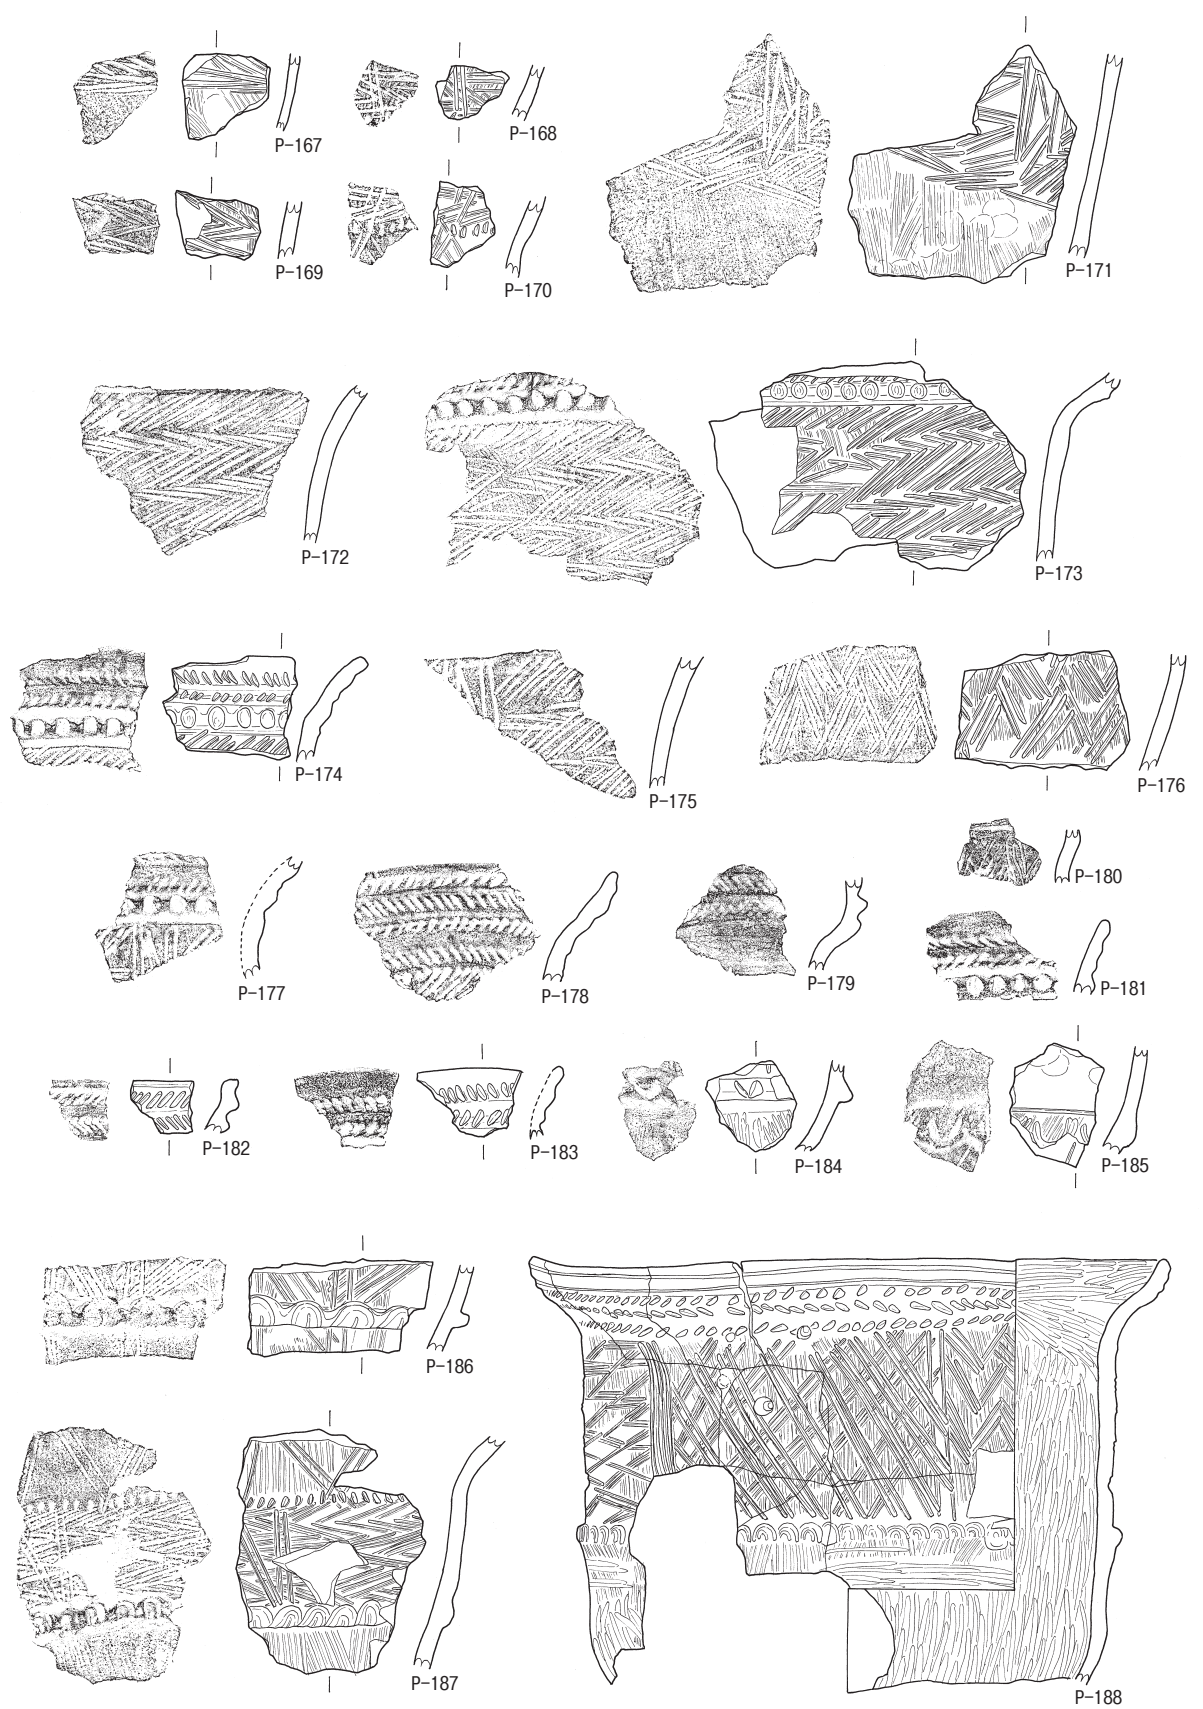 P-167
P-168
P-169
P-170
P-171
P-172
P-173
P-174
P-175
P-176
P-177
P-178
P-179
P-180
P-181
P-182
P-183
P-184
P-185
P-186
P-187
P-188